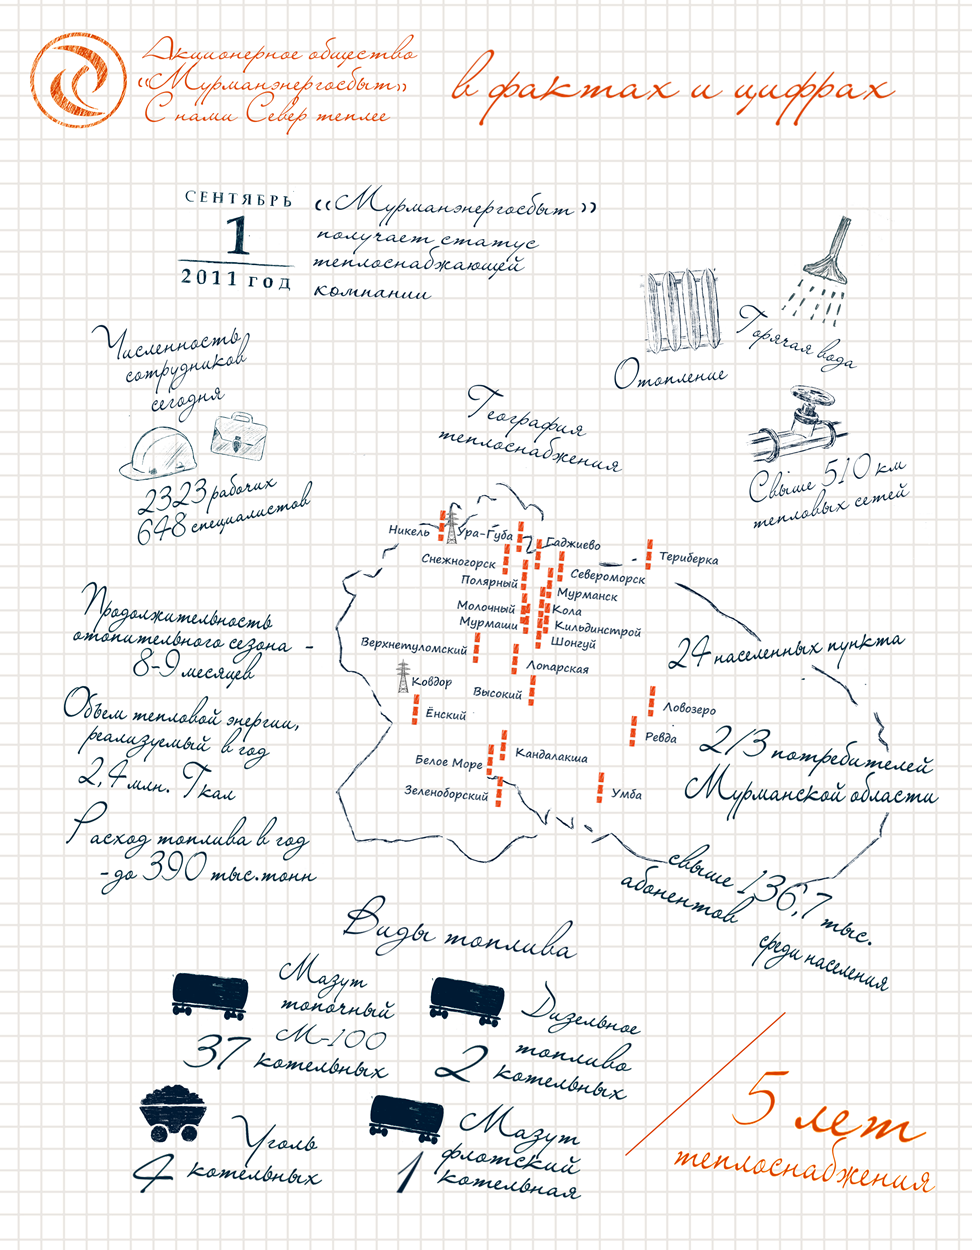 Акционерное общество
«Мурманэнергосбыт»
С нами Север теплее
в фактах и цифрах
СЕНТЯБРЬ
1
2011 год
«Мурманэнергосбыт»
получает статус
теплоснабжающей
компании
Отопление
Горячая вода
Свыше 510 км
тепловых сетей
Численность
сотрудников
сегодня
2323 рабочих
648 специалистов
География
теплоснабжения
Никель
Ура-Губа
Гаджиево
Териберка
Снежногорск
Североморск
Полярный
Мурманск
Молочный
Кола
Мурмаши
Кильдинстрой
Шонгуй
Верхнетуломский
Лопарская
Ковдор
Высокий
Ёнский
Ловозеро
Ревда
Кандалакша
Белое Море
Зеленоборский
Умба
Продолжительность
отопительного сезона -
8-9 месяцев
Объем тепловой энергии,
реализуемый в год
2,4 млн. Гкал
Расход топлива в год
-до 390 тыс.тонн
24 населенных пункта
2/3 потребителей
Мурманской области
свыше 136,7 тыс.
абонентов среди населения
Виды топлива
Мазут
топочный
М-100
37 котельных
Дизельное
топливо
2 котельных
Уголь
4 котельных
Мазут
флотский
1 котельная
5 лет
теплоснабжения